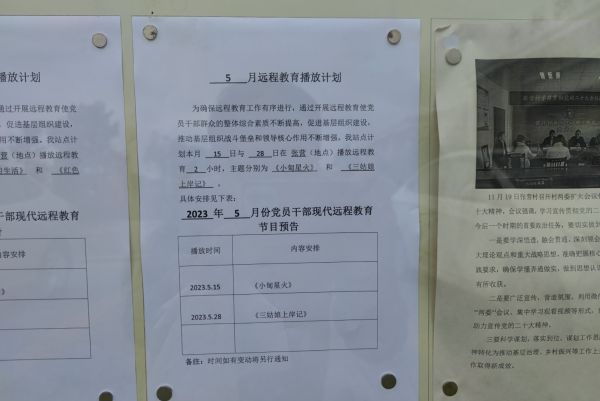 播放计划
通过开展远程教育使党
，促进基层组织建设，
用不断增强。我站点计
张营（地点）播放远程教
日生活》 和 《红色
干部现代远程教育
内容安排
5 月远程教育播放计划
为确保远程教育工作有序进行，通过开展远程教育使党
员干部群众的整体综合素质不断提高，促进基层组织建设，
推动基层组织战斗堡垒和领导核心作用不断增强。我站点计
划本月 15 日与 28 日在 张营（地点）播放远程教
育 2 小时，主题分别为 《小甸星火》 和 《三姑娘
上岸记》 。
具体安排见下表：
2023 年 5 月份党员干部现代远程教育
节目预告
播放时间 内容安排
2023.5.15 《小甸星火》
2023.5.28 《三姑娘上岸记》
备注：时间如有变动将另行通知
11月19日张营村召开村两委扩大会议
十大精神，会议强调，学习宣传贯彻党的二
今后一个时期的首要政治任务，要切实做到
一是要学深悟透，融会贯通，深刻领会
大理论观点和重大战略思想，准确把握核心
践要求，确保学懂弄通做实，做到思想认识
有所收获。
二是要广泛宣传，营造氛围，利用微信
“两委”会议、集中学习组看视频等形式，
助力宣传党的二十大精神。
三要科学谋划，落实到位，谋划工作思
神转化为推动基层治理、乡村振兴等工作上
作取得新成效。